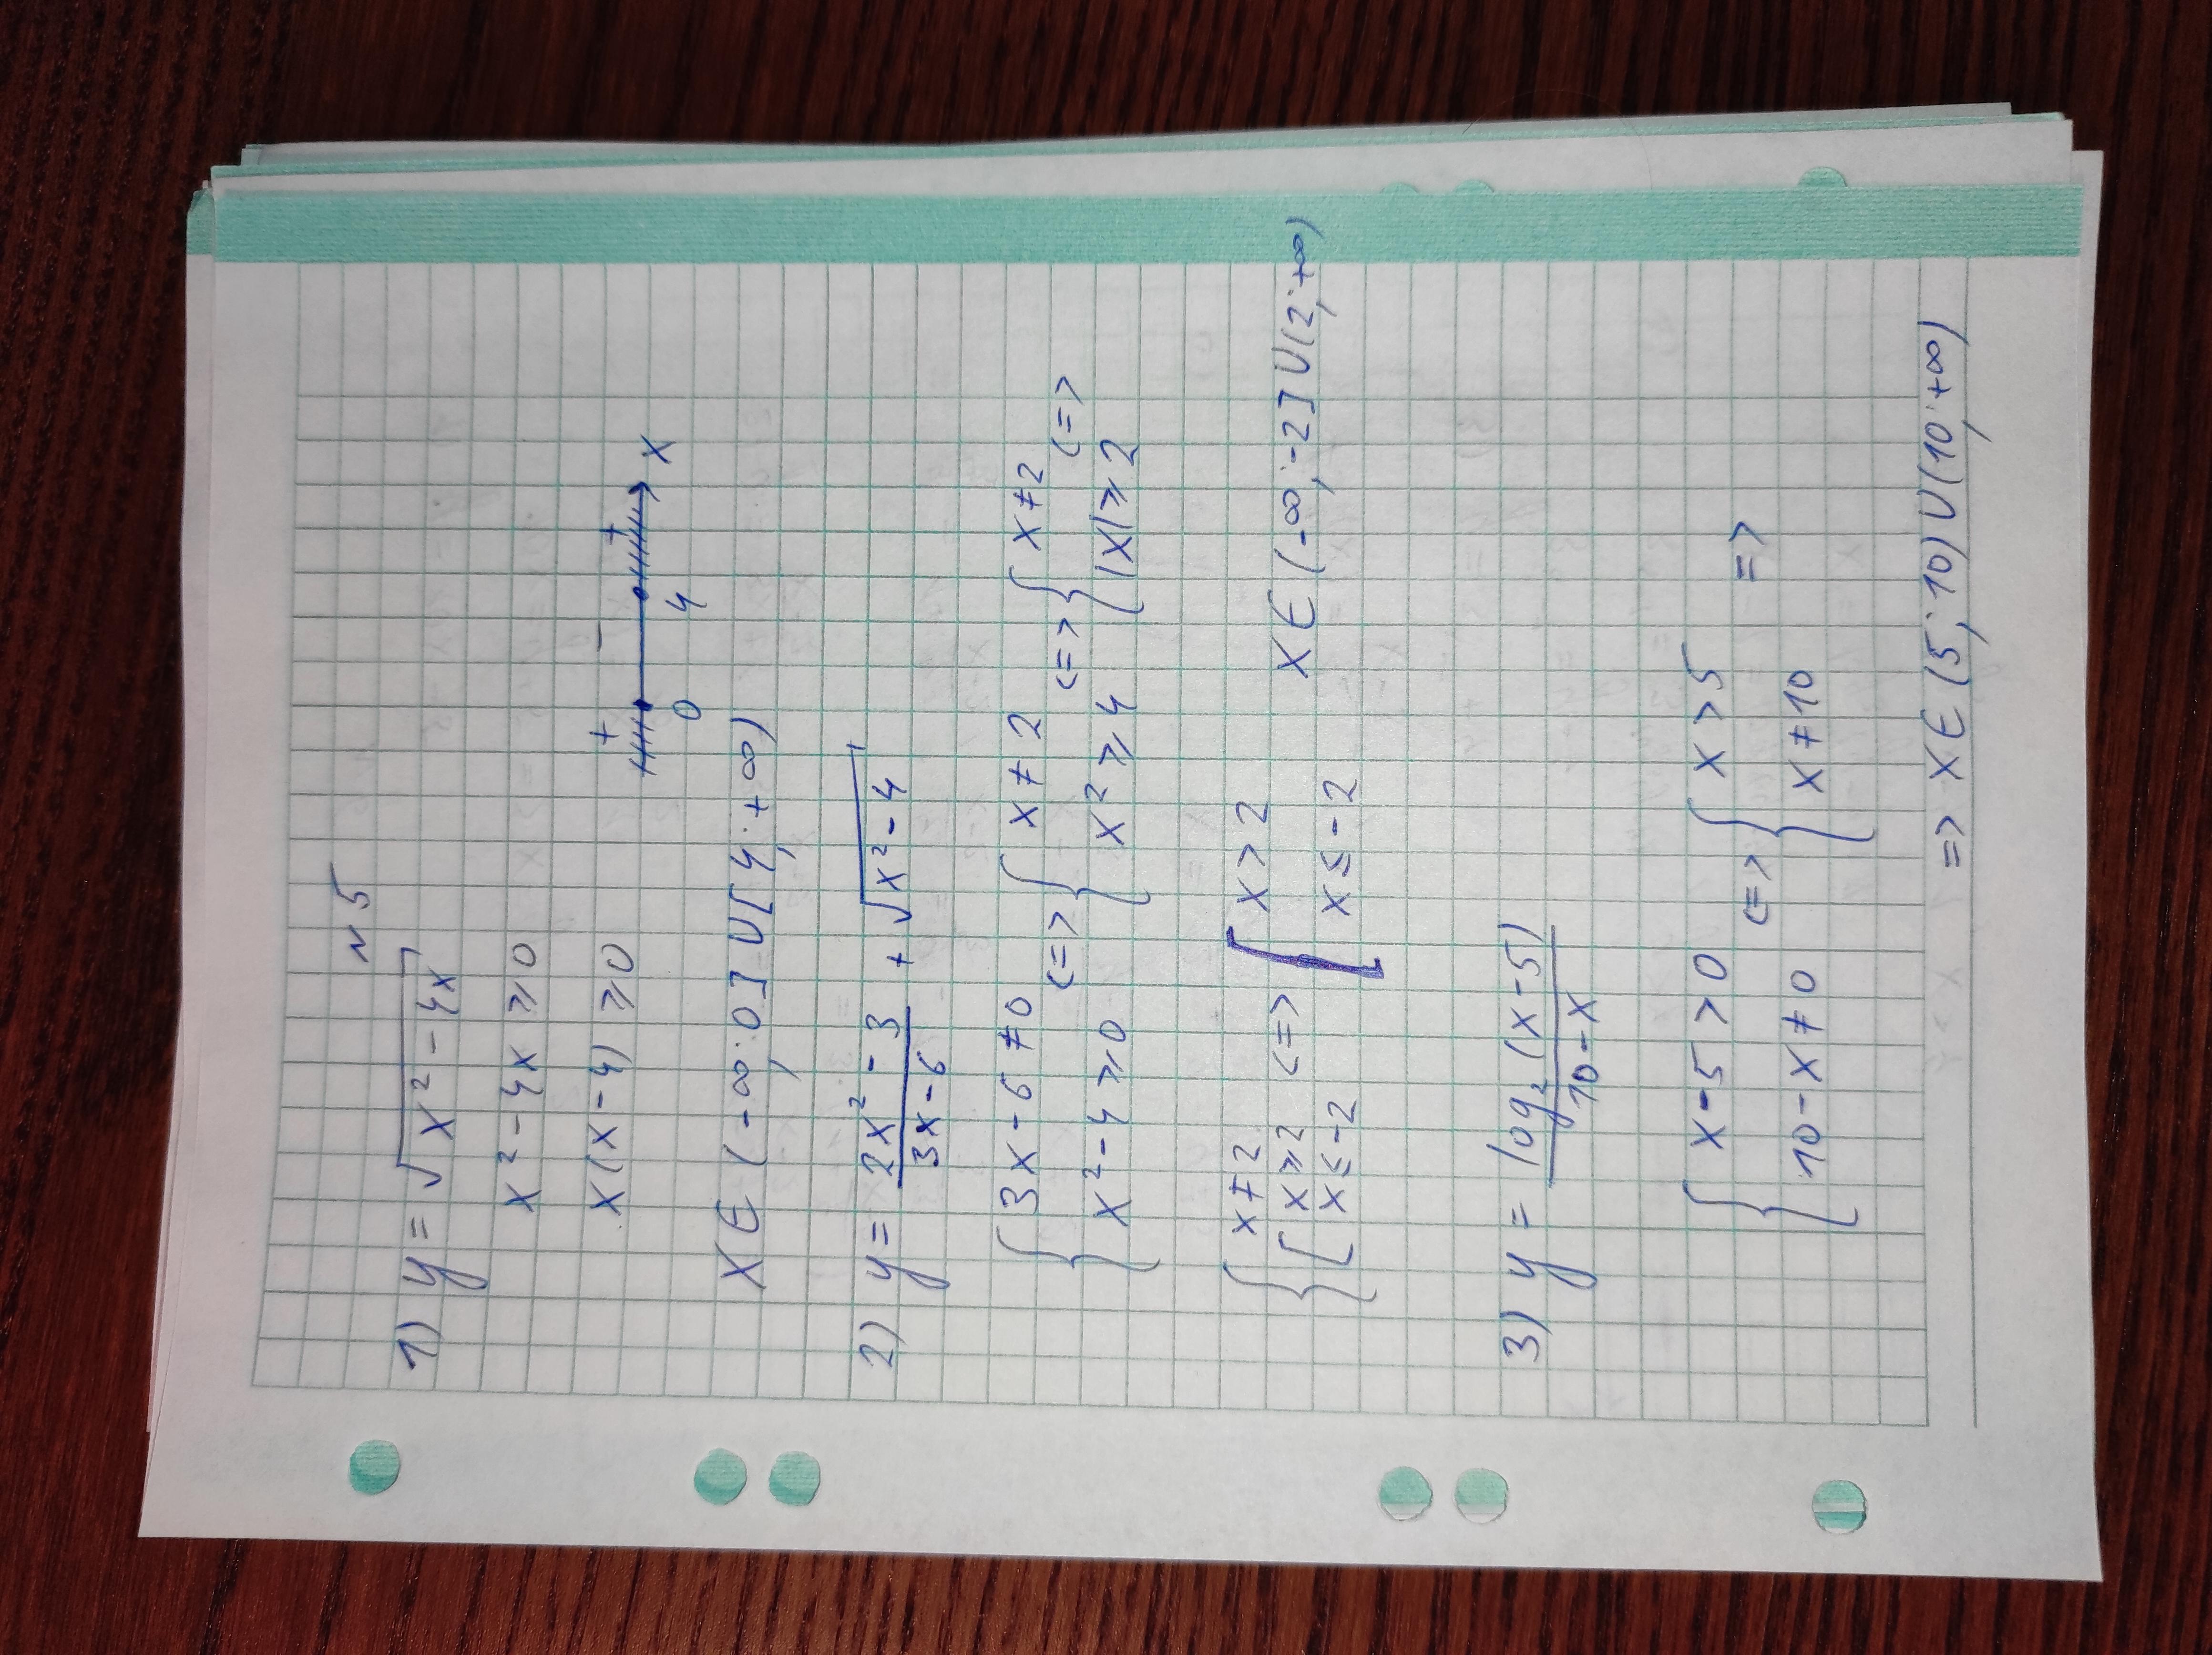 N 5
1) y = √(x² - 4x)
x² - 4x ≥ 0
x(x - 4) ≥ 0
+ - +
0 4 x
x ∈ (-∞; 0] ∪ [4; +∞)
2) y = (2x² - 3)/(3x - 6) + √(x² - 4)
{ 3x - 6 ≠ 0 { x ≠ 2 { x ≠ 2
<=> <=> <=>
{ x² - 4 ≥ 0 { x² ≥ 4 { |x| ≥ 2
{ x ≠ 2 [ x > 2
{ [ x ≥ 2 <=> x ∈ (-∞; -2] ∪ (2; +∞)
{ [ x ≤ -2 [ x ≤ -2
3) y = log₂(x - 5)/(10 - x)
{ x - 5 > 0 { x > 5
<=> =>
{ 10 - x ≠ 0 { x ≠ 10
=> x ∈ (5; 10) ∪ (10; +∞)